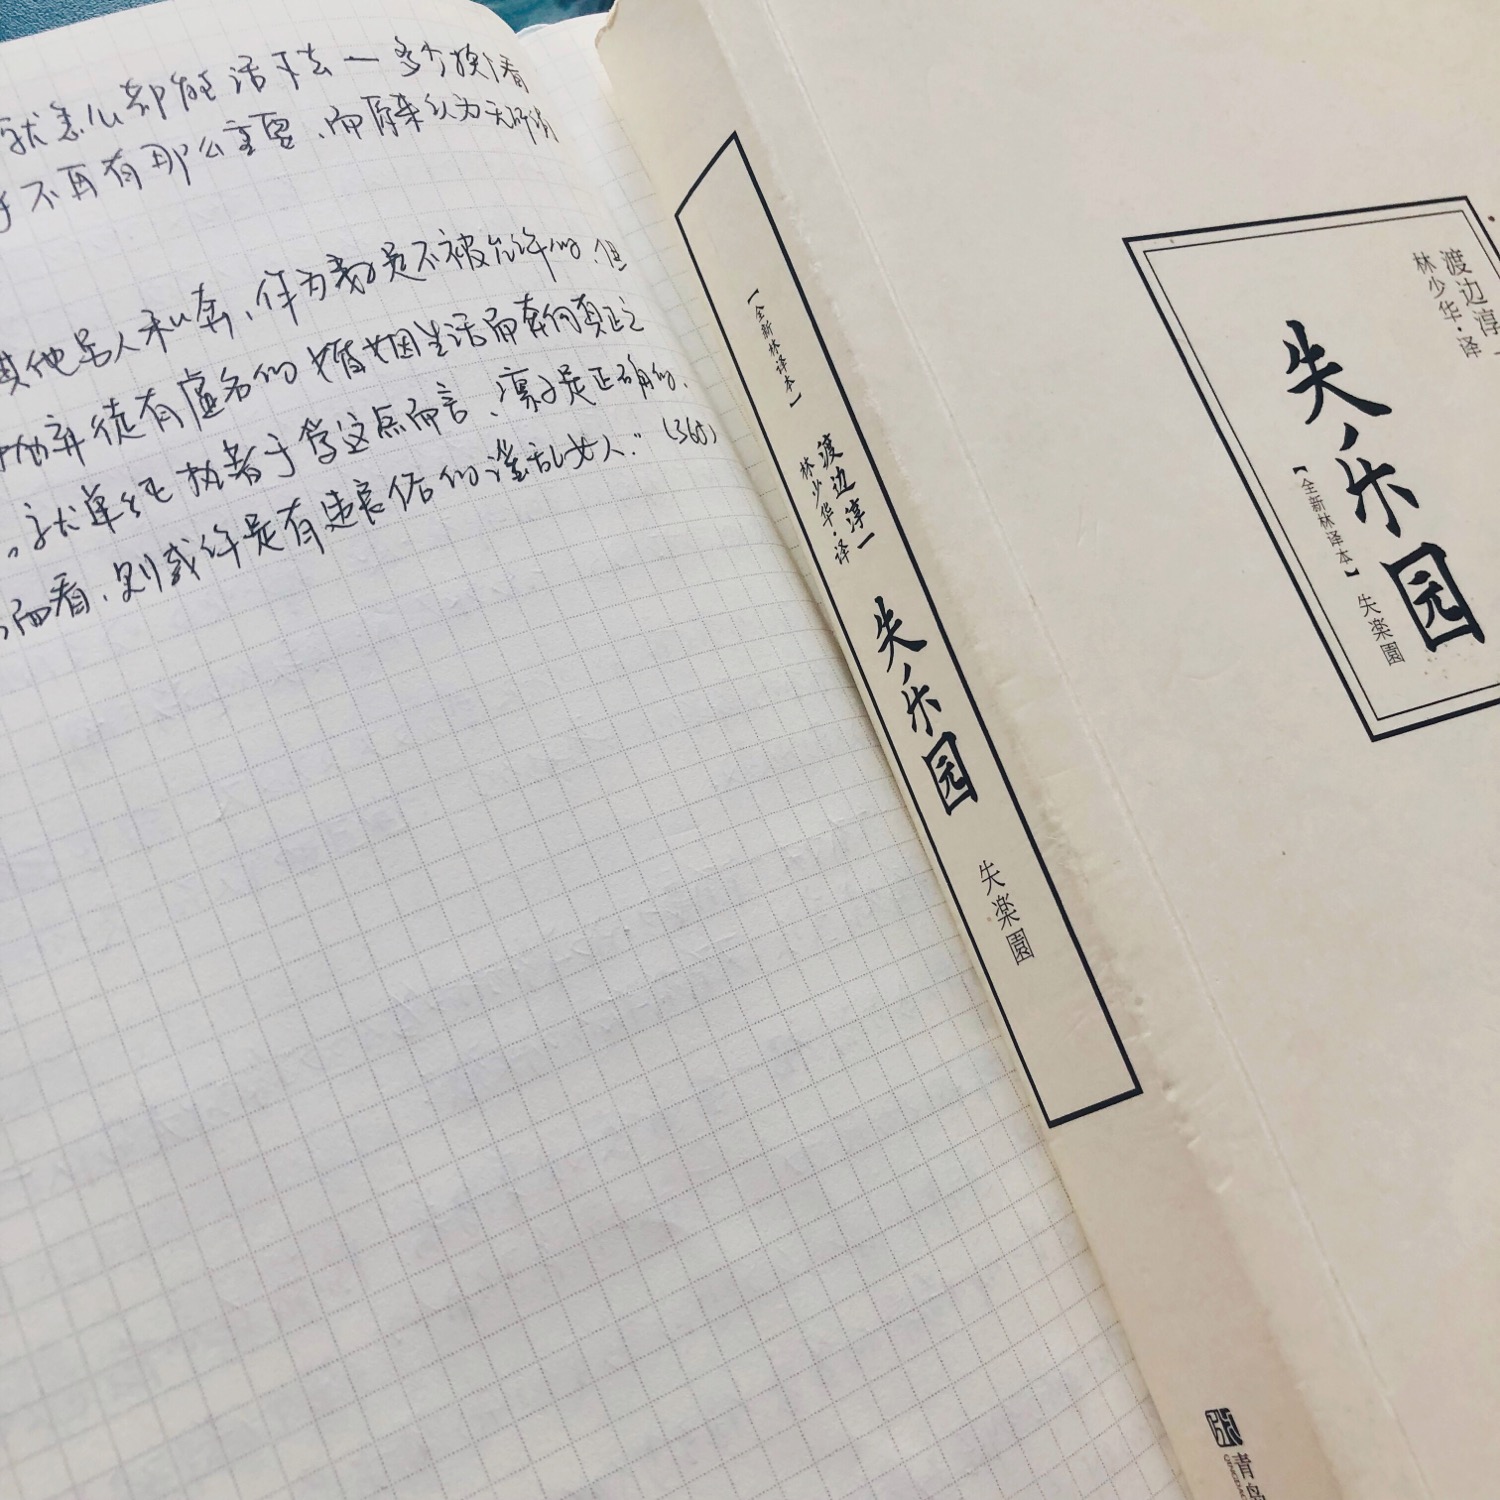 就怎么都能活下去一多少换个看
不再有那么重要、而原来认为无所谓
其他男人私奔、作为妻子是不被允许的、但
抛弃徒有虚名的婚姻生活而奔向真正之
就单纯执着于爱这点而言、凛子是正确的、
而看、则或许是有违良俗的淫乱女人."
【全新林译本】
渡边淳一
林少华·译
失乐园
失楽園
青岛
渡边淳一
林少华·译
失乐园
【全新林译本】
失楽園